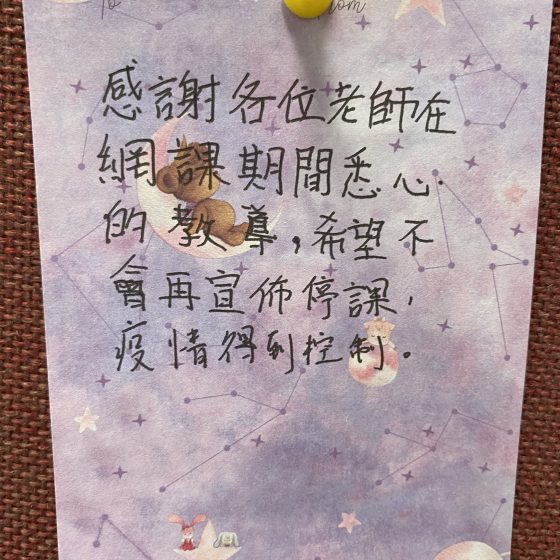 To
From
感謝各位老師在
網課期間悉心
的教導，希望不
會再宣佈停課，
疫情得到控制。